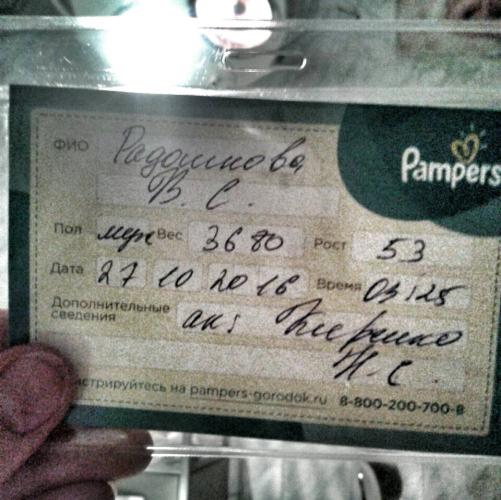 Pampers
ФИО Радошнова
В. С.
Пол муж Вес 3680 Рост 53
Дата 27 10 2016 Время 03:25
Дополнительные
сведения ак:
Н. С.
стрируйтесь на pampers-gorodok.ru 8-800-200-700-8